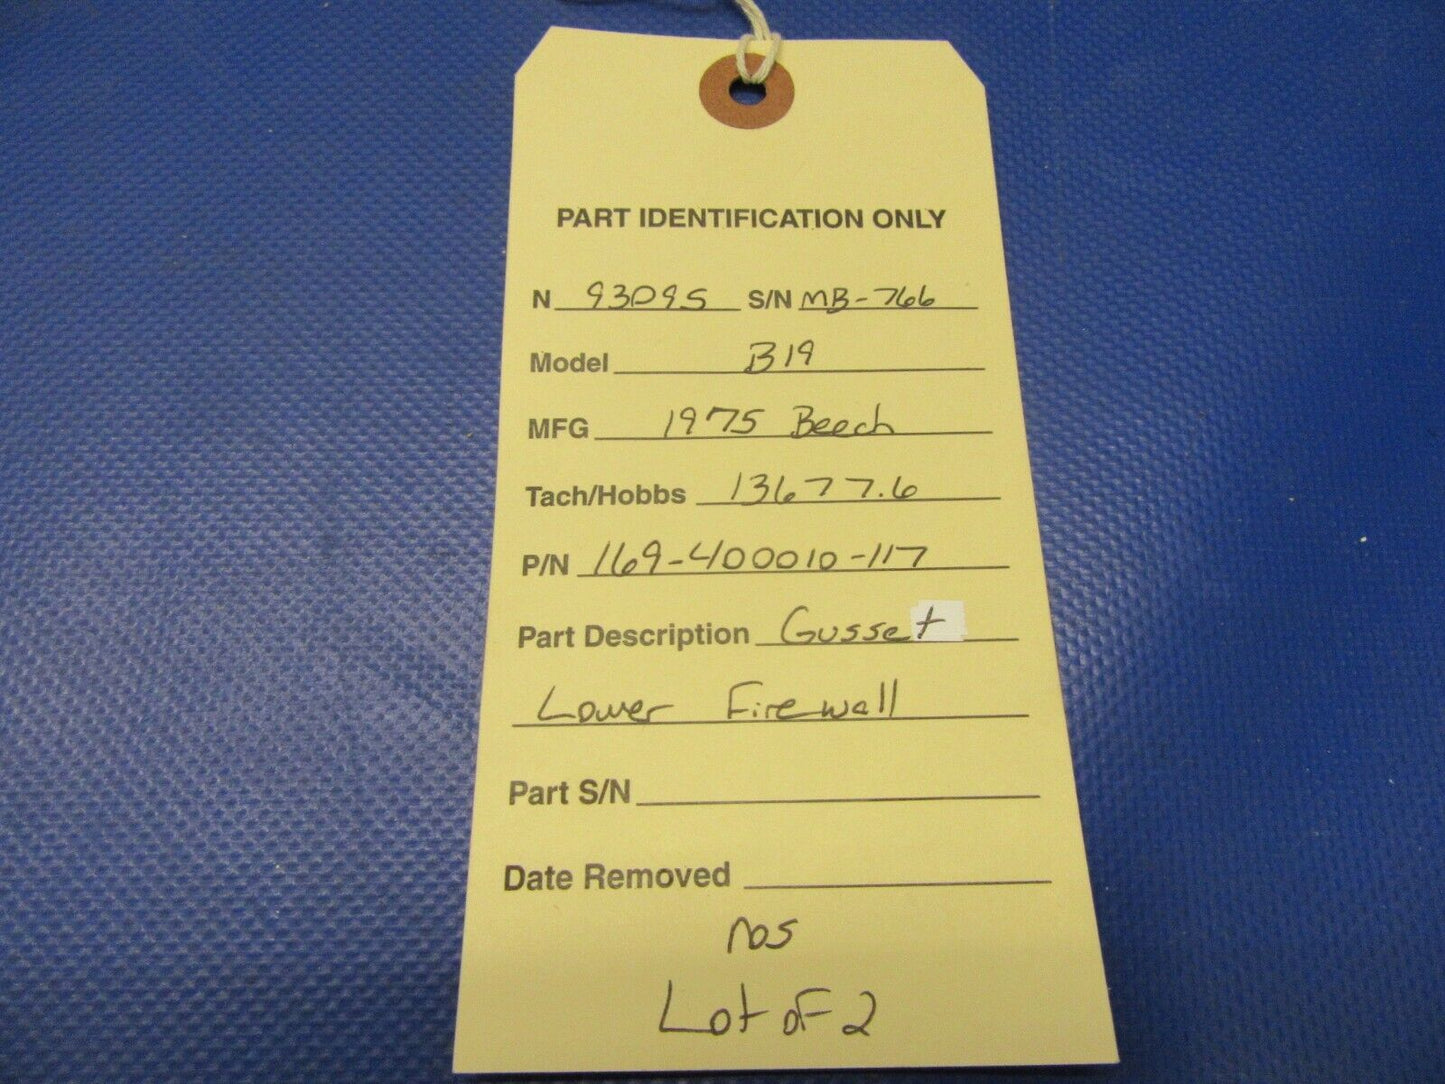 PART IDENTIFICATION ONLY
N 9309S S/N MB-766
Model B19
MFG 1975 Beech
Tach/Hobbs 13677.6
P/N 169-400010-117
Part Description Gusset
Lower Firewall
Part S/N
Date Removed
nos
Lot of 2